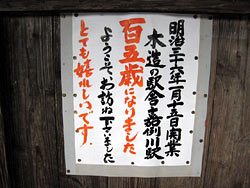 明治三十六年一月十五日開業
木造の駅舎嘉例川駅
百五歳になりました
ようこそ、お訪ね下さいました
とても嬉しいです。